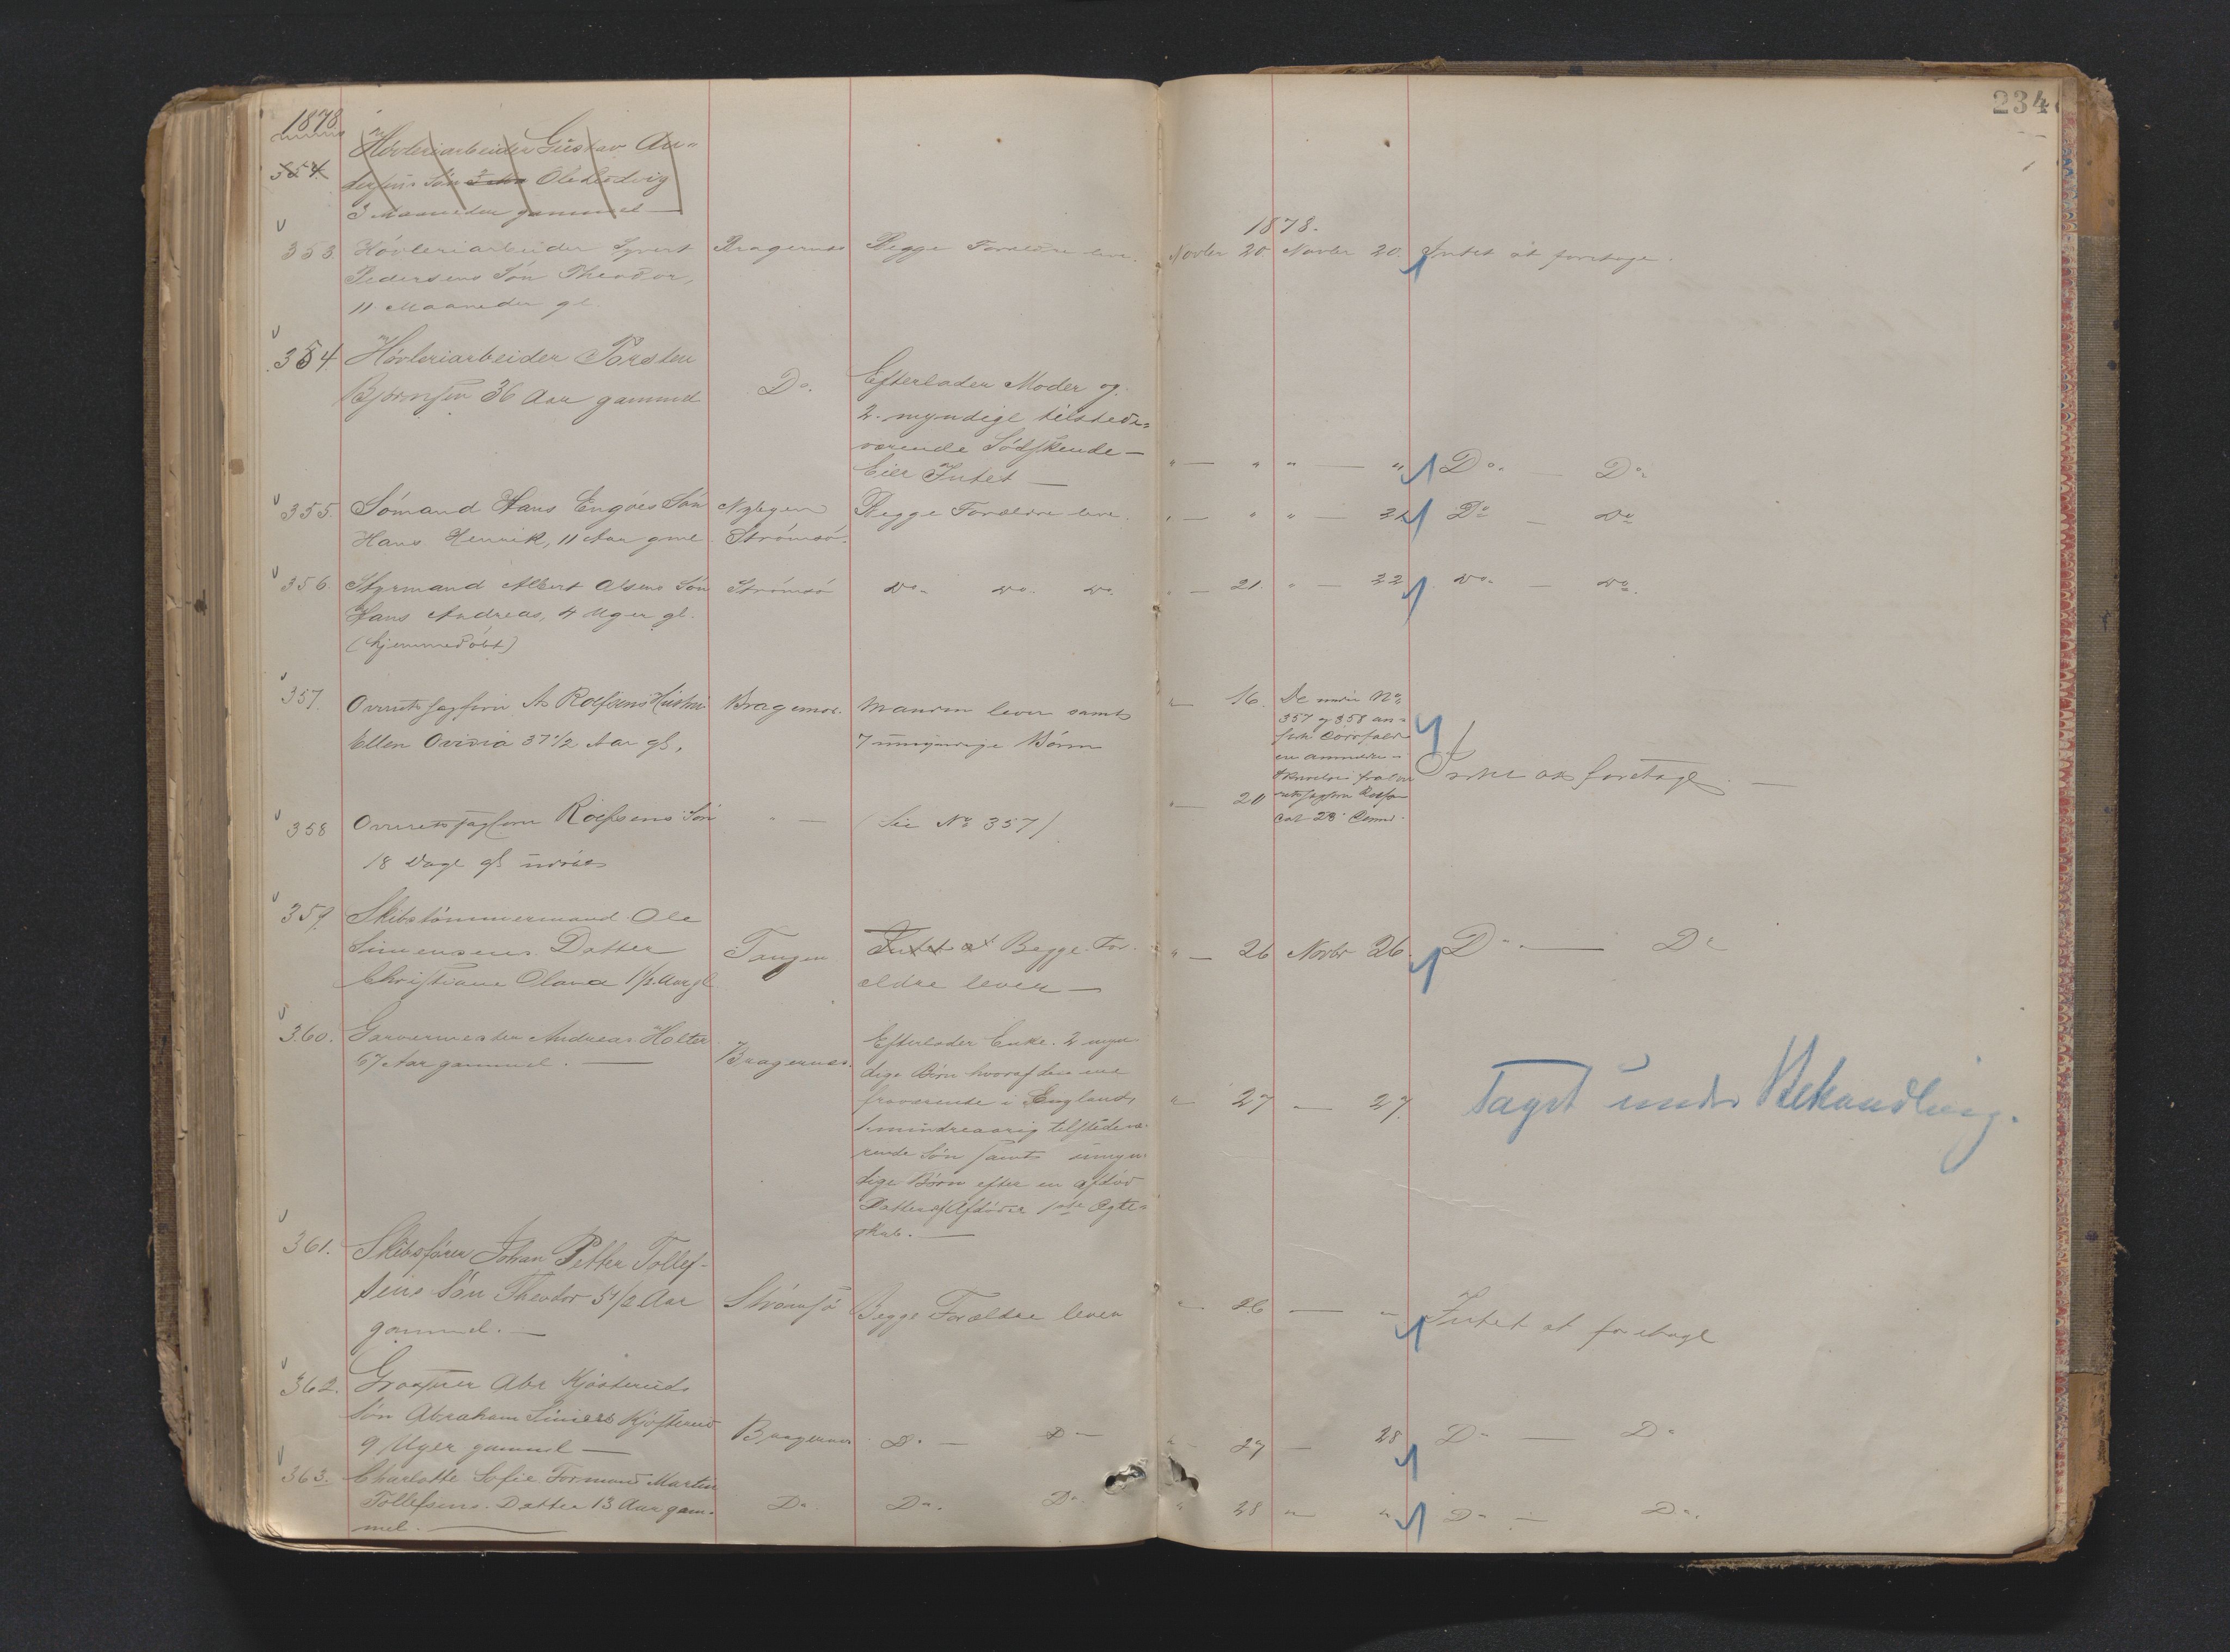 234
1878
354. Høvleriarbeider Gustav An-
dersens Søn Ole Ludvig
3 Maaneder gammel —
1878.
353. Høvleriarbeider Syvert Bragernæs Begge Forældre leve. Novbr 20. Novbr 20. Intet at foretage.
Pedersens Søn Theodor,
11 Maaneder gl.
354. Høvleriarbeider Torsten
Bjørnsen 36 Aar gammel Do. Efterlader Moder og
2 myndige tilstede-
værende Sødskende —
Eier Intet — " — " " — " Do. — Do.
355. Sømand Hans Engøes Søn Nylegen Begge Forældre leve. " — " " — 22 Do — Do
Hans Henrik, 11 Aar gml. Strømsø.
356. Styrmand Albert Olsens Søn Strømsø Do. Do. Do. " — 21. " — 22 Do. — Do.
Hans Andreas, 4 Uger gl.
(hjemmedøbt)
357. Overretssagfører A Roefsens Hustru Bragernæs. Manden lever samt " — 16. De under No
Ellen Ovidia 37 1/2 Aar gl. 7 umyndige Børn 357 og 358 an-
førte Dødsfald
ere anmeldte
Intet at foretage. —
358 Overretssagfører Roefsens Søn " — (See No 357) " — 20
18 Dage gl. udøbt
359. Skibstømmermand Ole
Simensens Datter Tangen Intet at Begge For- " — 26 Novbr 26. Do. — Do
Christiane Olava 1 1/2 Aar gl. ældre lever —
360. Garvermester Andreas Holter
67 Aar gammel. — Bragernæs. Efterlader Enke. 2 myn-
dige Børn hvoraf den ene
fraværende i England, " — 27 — 27. Taget under Behandling.
1 mindreaarig tilstedevæ-
rende Søn samt umyn-
dige Børn efter en afdød
Datter af Afdødes 1ste Ægte-
skab. —
361. Skibsfører Johan Petter Tollef-
sens Søn Theodor 5 1/2 Aar Strømsø Begge Forældre lever " — 26 — " Intet at foretage
gammel. —
362. Graverer Abr Kjøsterud
Søn Abraham Simers Kjøsterud Bragernæs Do. — Do — " — 27 — 28 Do — Do
9 Uger gammel —
363. Charlotte Sofie Formand Martin
Tollefsens Datter 13 Aar gam- Do. Do. Do. " 28 " — " Do — Do.
mel. —